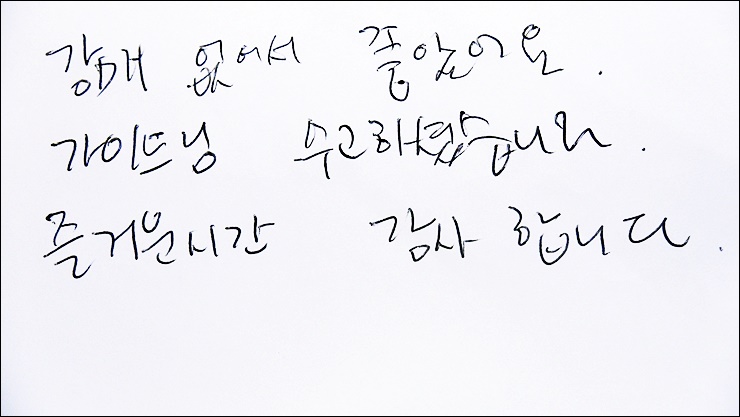 강매 없어서 좋았어요.
가이드닝 수고하셨습니다.
즐거운시간 감사 합니다.